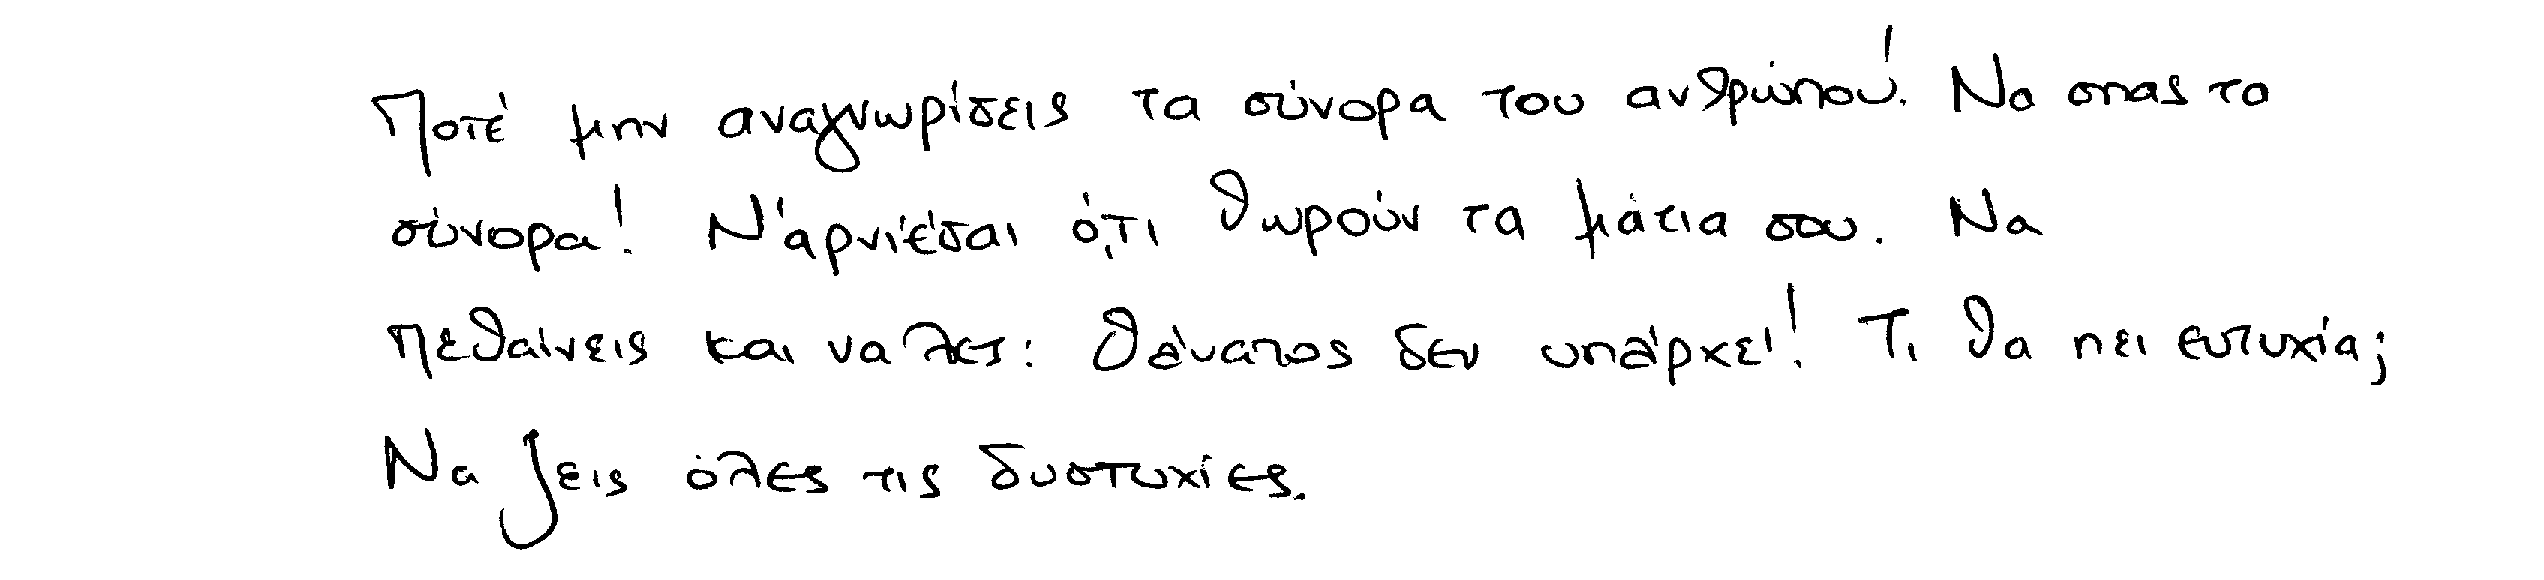 Ποτέ μην αναγνωρίσεις τα σύνορα του ανθρώπου! Να σπας τα
σύνορα! Ν'άρνιέσαι ό,τι θωρούν τα μάτια σου. Να
πεθαίνεις και να λες: Θάνατος δεν υπάρχει! Τι θα πει ευτυχία;
Να ζεις όλες τις δυστυχίες.